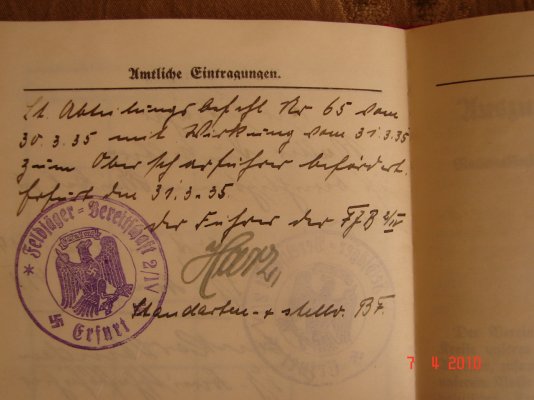 Amtliche Eintragungen.
Lt. Abteilungsbefehl Nr 65 vom
30.3.35 mit Wirkung vom 31.3.35
zum Oberscharführer befördert.
Erfurt den 31.3.35.
der Führer der FJB 2/IV
Feldjäger-Bereitschaft 2/IV
Erfurt
Standarten- + stellv. BF.
7 4 2010